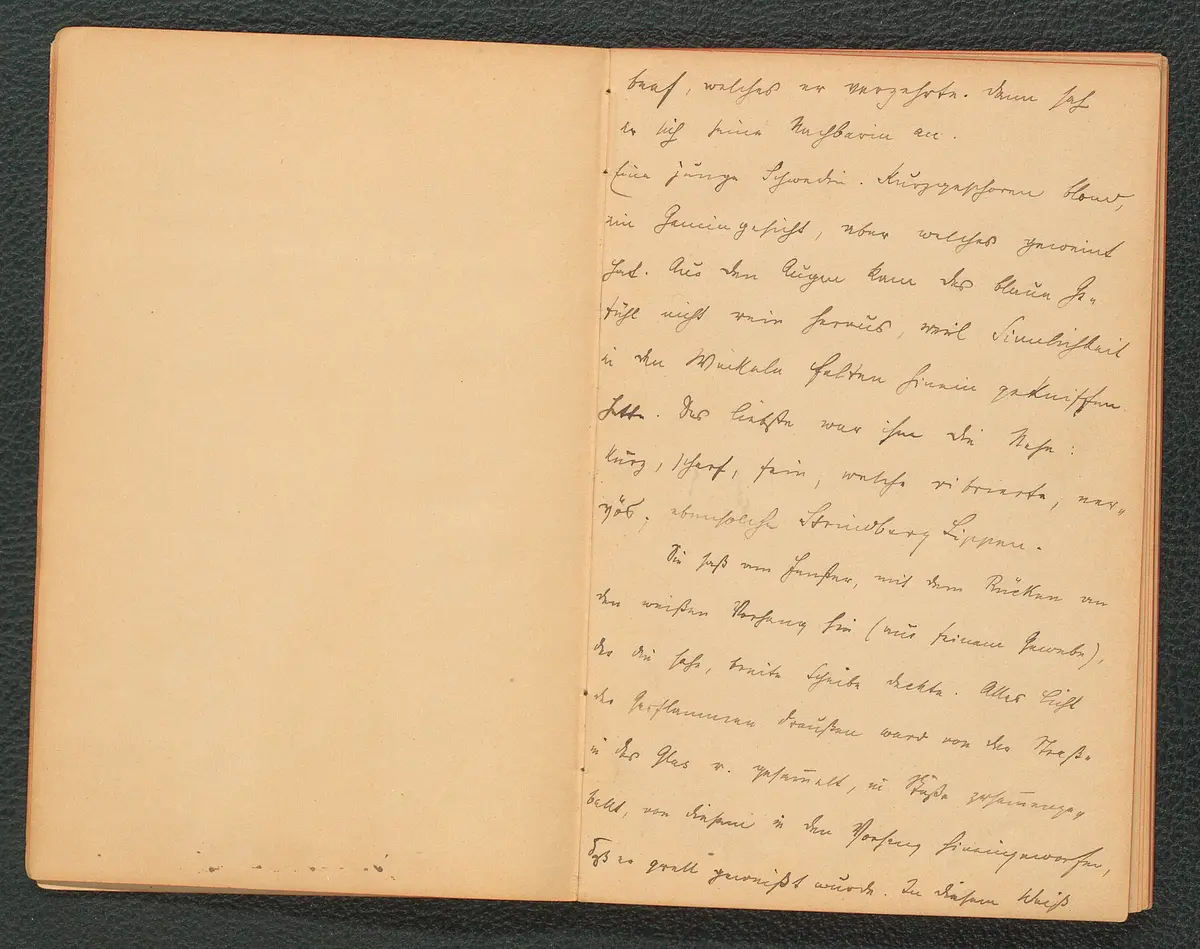 beaf, welches er verzehrte. Dann sah
er sich seine Nachbarin an.
Eine junge Schwedin. Kurzgeschoren blond,
ein Gemingesicht, aber welches geweint
hat. Aus den Augen kam das blaue Ge-
fühl nicht rein heraus, weil Sinnlichkeit
in den Winkeln Falten hinein gekniffen
hatte. Das liebste war ihm die Nase:
kurz, scharf, fein, welche vibrierte, ner-
vös, ebensolche Strindberg Lippen.
Sie saß am Fenster, mit dem Rücken an
den weißen Vorhang hin (aus feinem Gewebe),
der die hohe, breite Scheibe deckte. Alles Licht
der Gasflammen draußen ward von der Straße
in das Glas gesammelt, in zusammenge-
ballt, von diesem in den Vorhang hineingeworfen,
daß er grell geweißt wurde. In diesem Weiß